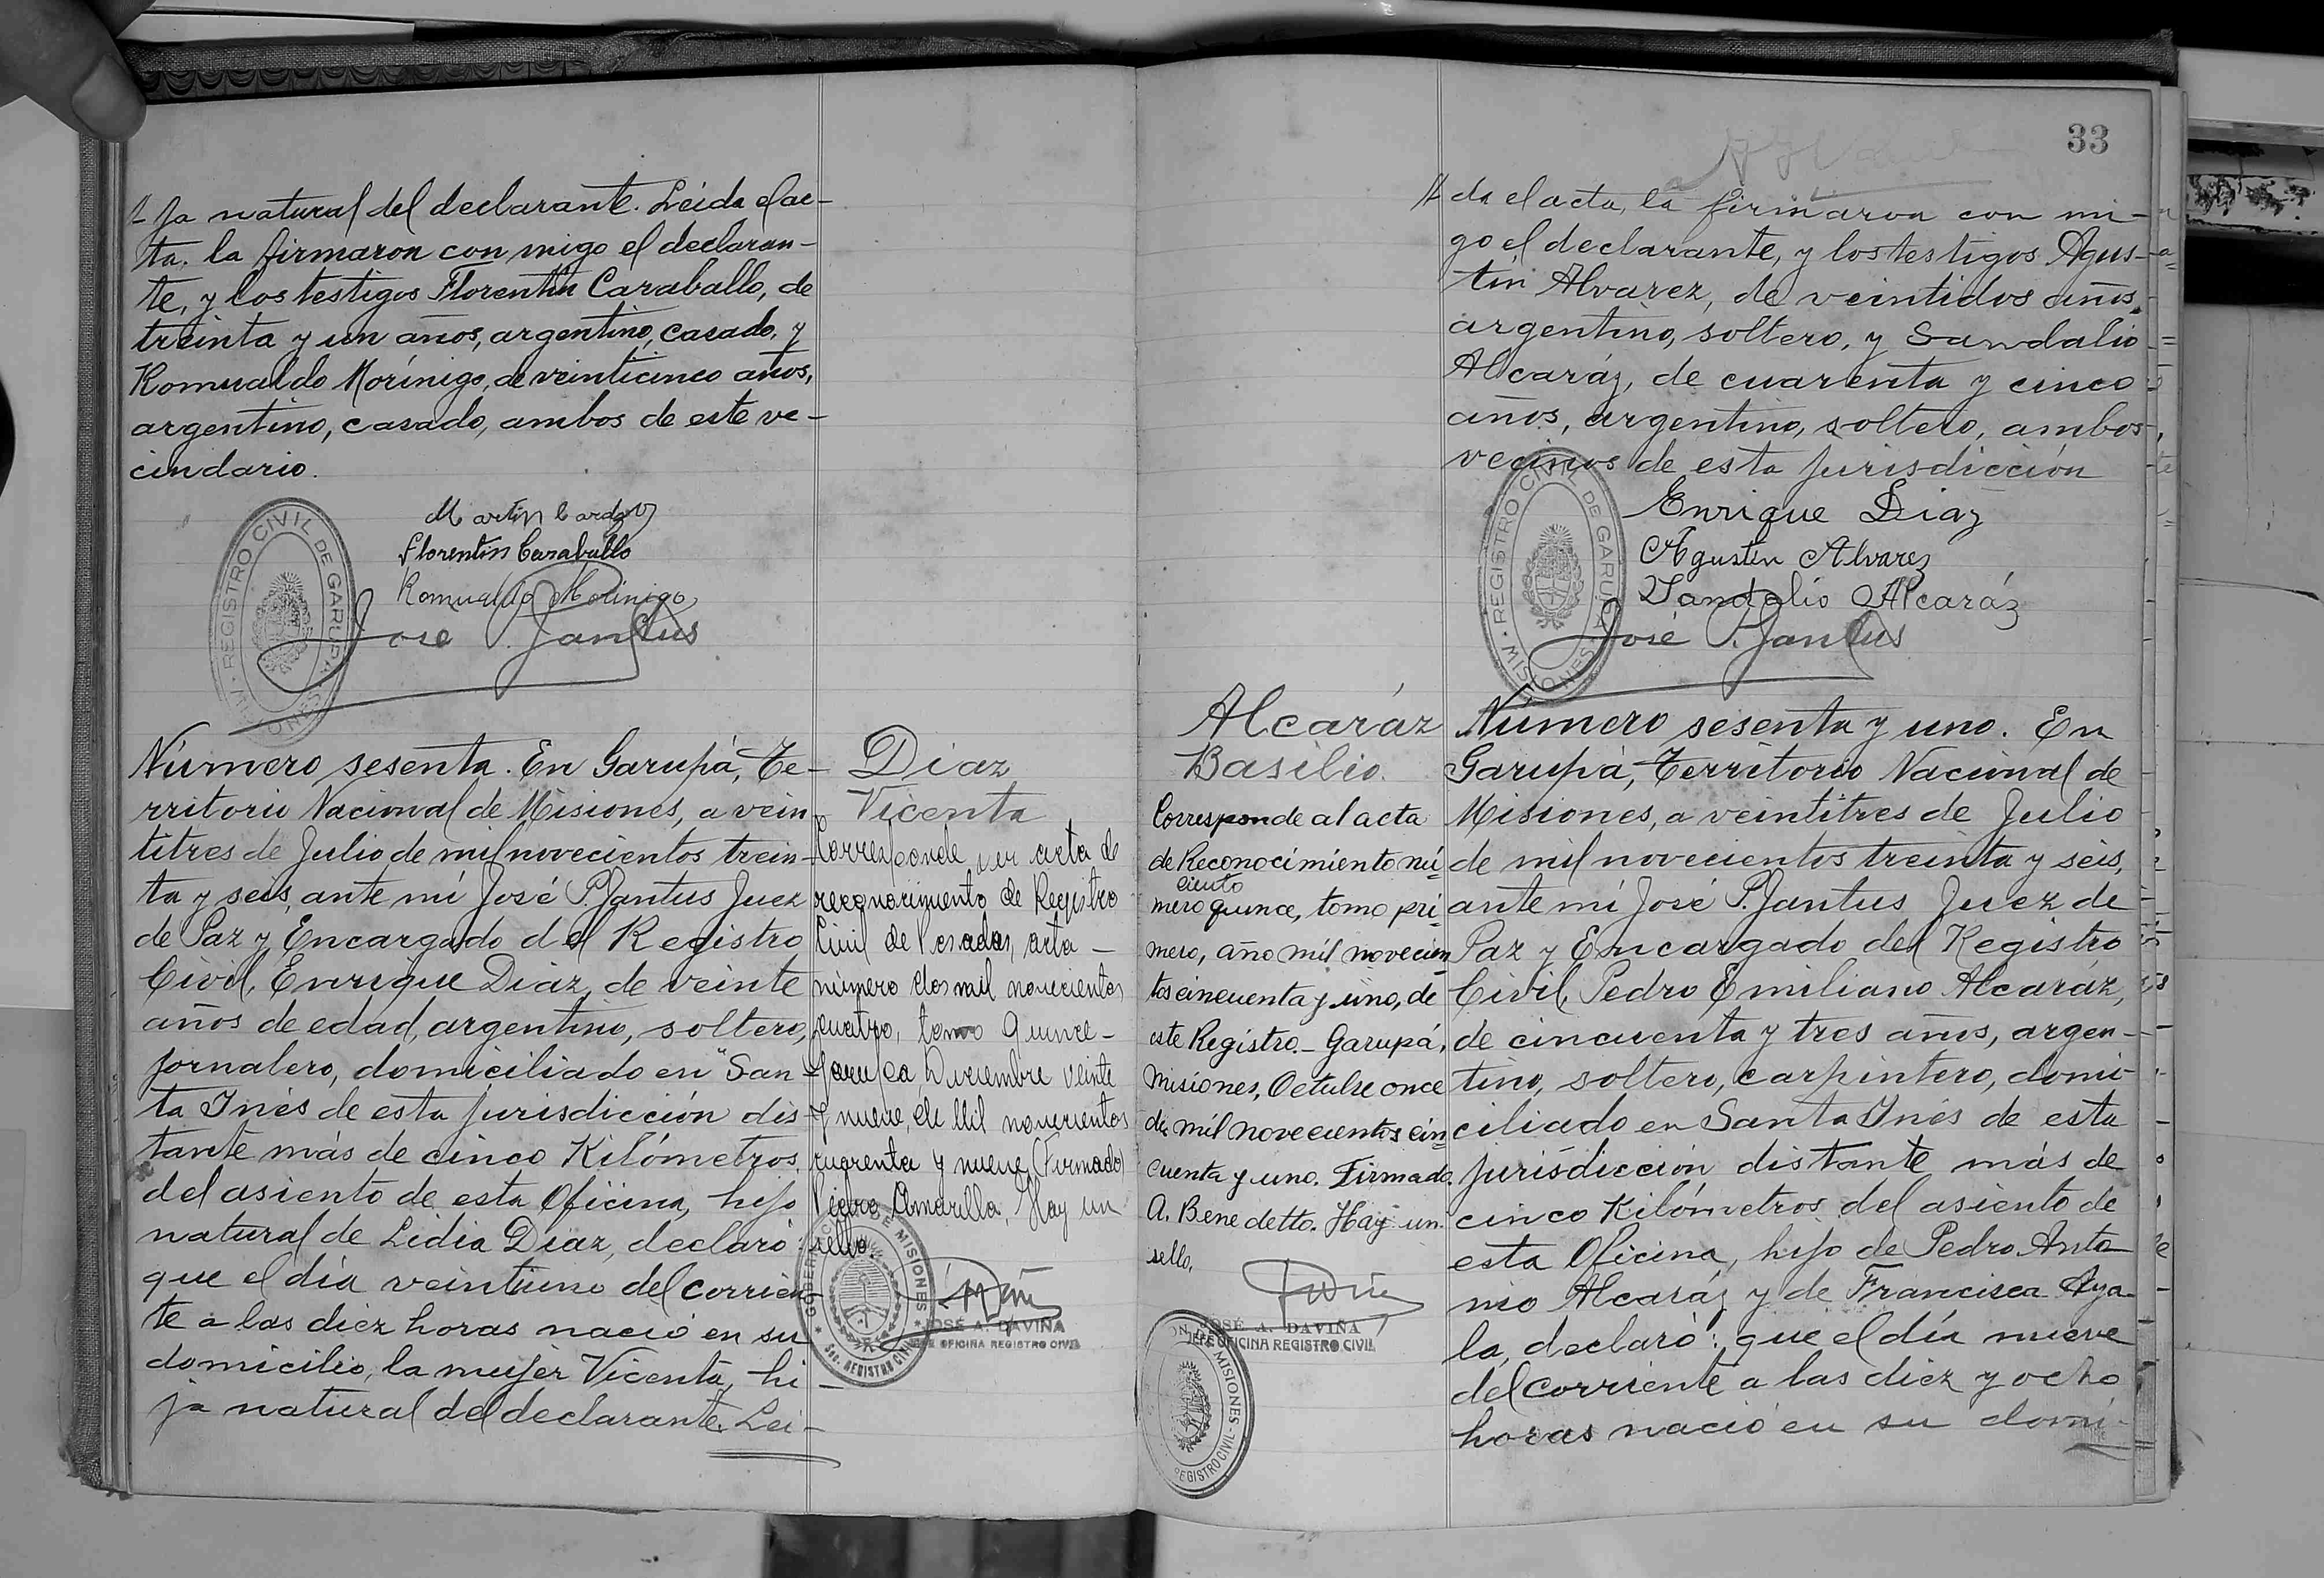 ja natural del declarante. Leida el ac-
ta, la firmaron con migo el declaran-
te, y los testigos Florentin Caraballo, de
treinta y un años, argentino, casado, y
Romualdo Morínigo, de veinticinco años,
argentino, casado, ambos de este ve-
cindario.
Martin Cardozo
Florentin Caraballo
Romualdo Morinigo
José P. Jantus
REGISTRO CIVIL DE GARUPA
MISIONES
Número sesenta. En Garupá, Te-
rritorio Nacional de Misiones, a vein
titres de Julio de mil novecientos trein-
ta y seis, ante mí José P. Jantus Juez
de Paz y Encargado del Registro
Civil, Enrique Diaz, de veinte
años de edad, argentino, soltero,
jornalero, domiciliado en "San-
ta Inés de esta jurisdicción dis-
tante más de cinco Kilómetros
del asiento de esta Oficina, hijo
natural de Lidia Diaz, declaró:
que el día veintiuno del corrien-
te a las diez horas nació en su
domicilio, la mujer Vicenta, hi-
ja natural del declarante. Lei-
Diaz
Vicenta
Corresponde acta de
reconocimiento de Registro
Civil de Posadas, acta
número dos mil novecientos
cuatro, tomo Quince-
Garupa Diciembre veinte
y nueve, de Mil novecientos
cuarenta y nueve (Firmado)
Amarilla. Hay un
sello.
GOBERNACION DE MISIONES
Sec. REGISTRO CIVIL
JOSÉ A. DAVIÑA
JEFE OFICINA REGISTRO CIVIL
33
da el acta, la firmaron con mi-
go el declarante, y los testigos Agus-
tín Alvarez, de veintidos años,
argentino, soltero, y Sandalio
Alcaráz, de cuarenta y cinco
años, argentino, soltero, ambos
vecinos de esta jurisdicción
Enrique Diaz
Agustin Alvarez
Sandalio Alcaráz
José P. Jantus
REGISTRO CIVIL DE GARUPA
MISIONES
Alcaráz
Basilio.
Corresponde al acta
de Reconocimiento nú=
ciento
mero quince, tomo pri
mero, año mil novecien
tos cincuenta y uno, de
este Registro.- Garupá,
Misiones, Octubre once
de mil novecientos cin=
cuenta y uno. Firmado.
A. Benedetto. Hay un
sello,
JOSÉ A. DAVIÑA
JEFE OFICINA REGISTRO CIVIL
MISIONES - REGISTRO CIVIL
Número sesenta y uno. En
Garupá, Territorio Nacional de
Misiones, a veintitres de Julio
de mil novecientos treinta y seis,
ante mí José P. Jantus Juez de
Paz y Encargado del Registro
Civil, Pedro Emiliano Alcaráz,
de cincuenta y tres años, argen-
tino, soltero, carpintero, domi-
ciliado en Santa Inés de esta
jurisdicción distante más de
cinco Kilómetros del asiento de
esta Oficina, hijo de Pedro Anto
nio Alcaráz y de Francisca Aya-
la, declaró: que el día nueve
del corriente a las diez y ocho
horas nació en su domi-